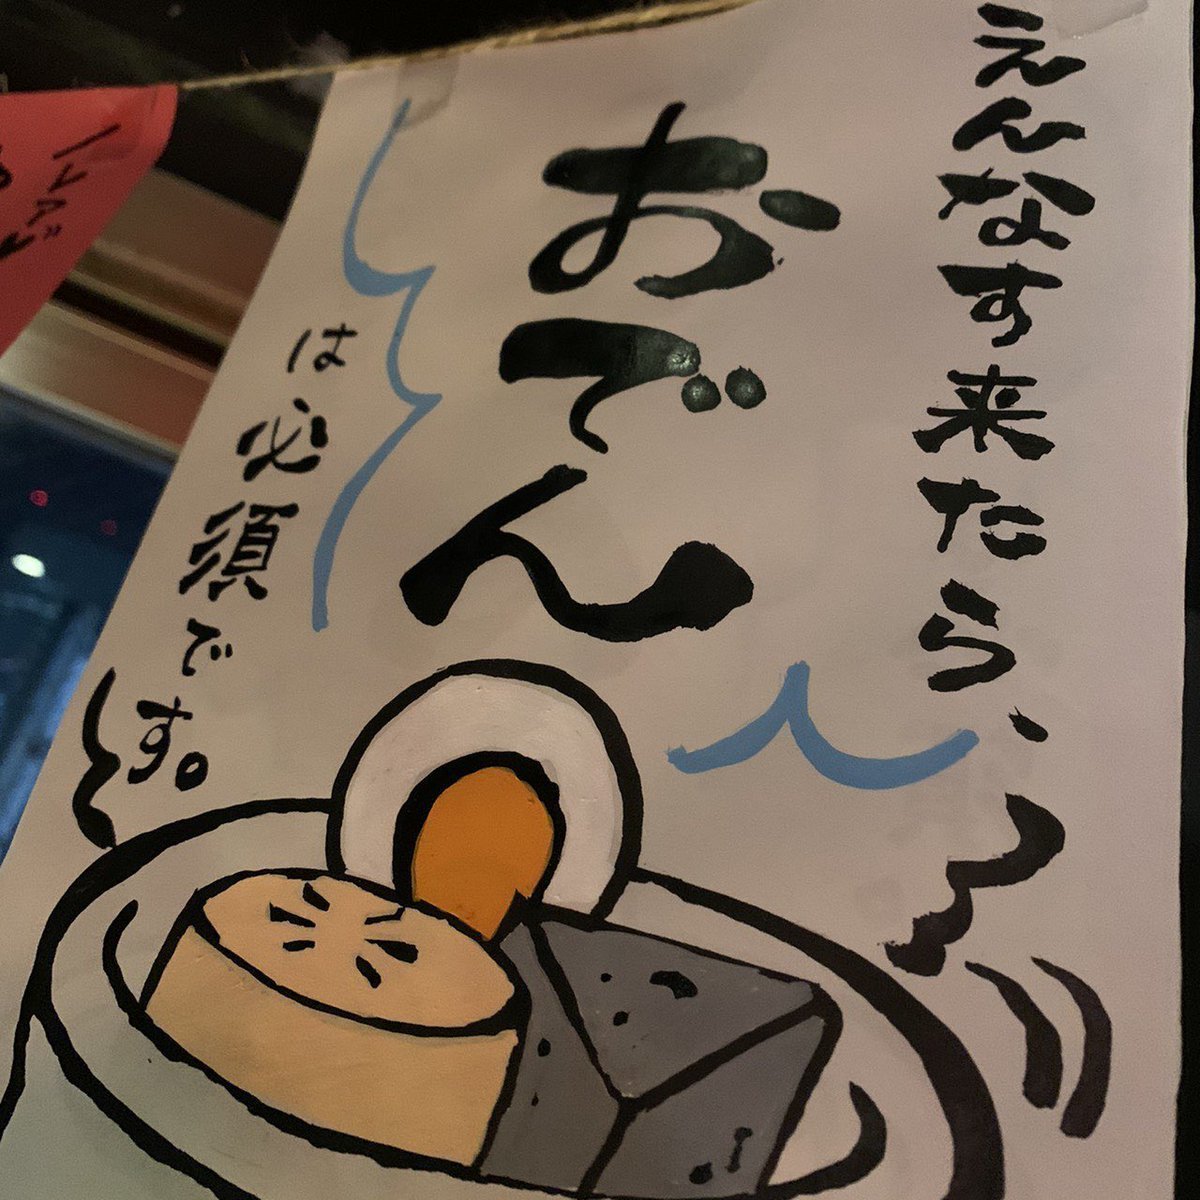 えんなす来たら、
おでん
は必須です。